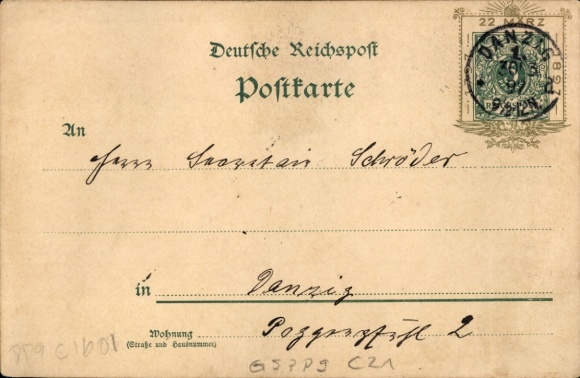 22 MÄRZ
1897
Deutsche Reichspost
Postkarte
DANZIG
1
97
An
Herrn Secretair Schröder
in Danzig
Wohnung
(Straße und Hausnummer)
Poggenpfuhl 2
G57P9 C21